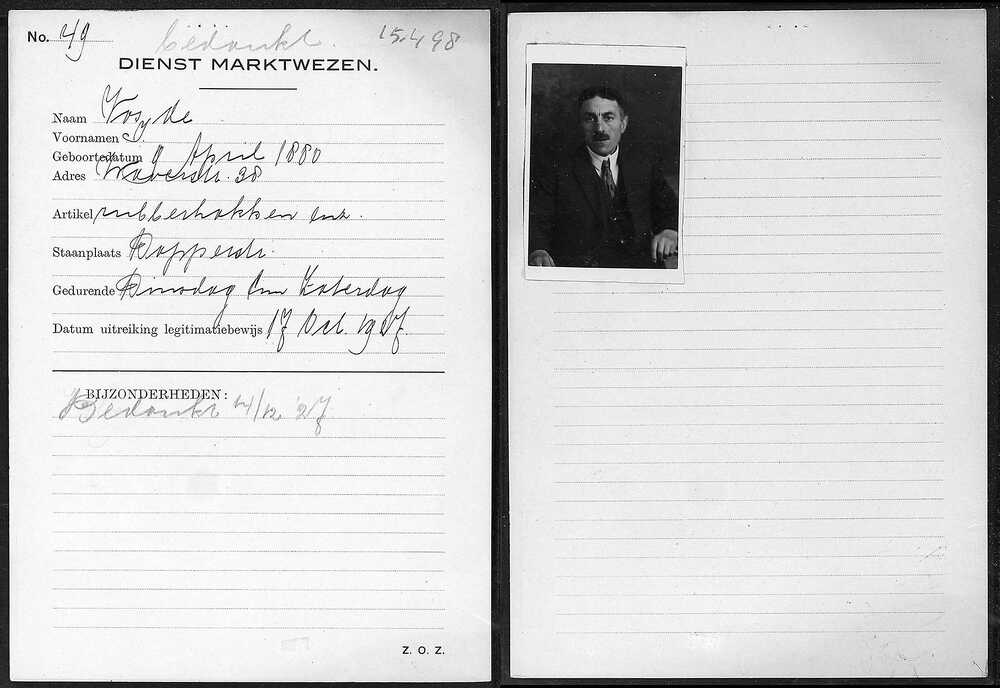 No. 49 Bedankt. 15.4.98
DIENST MARKTWEZEN.
Naam Vos, de
Voornamen
Geboortedatum 9 April 1880
Adres 38
Artikel rubberhakken enz.
Staanplaats
Gedurende Dinsdag t/m Zaterdag
Datum uitreiking legitimatiebewijs 17 Oct. 1927.
BIJZONDERHEDEN:
Bedankt 14/12 '27
Z. O. Z.